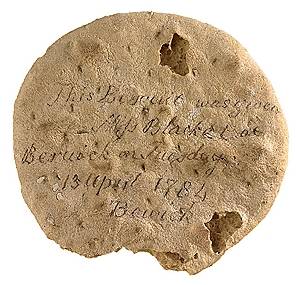 This Biscuit was given
Miss Blacket at
Berwick on Tuesday
13 April 1784
Berwick